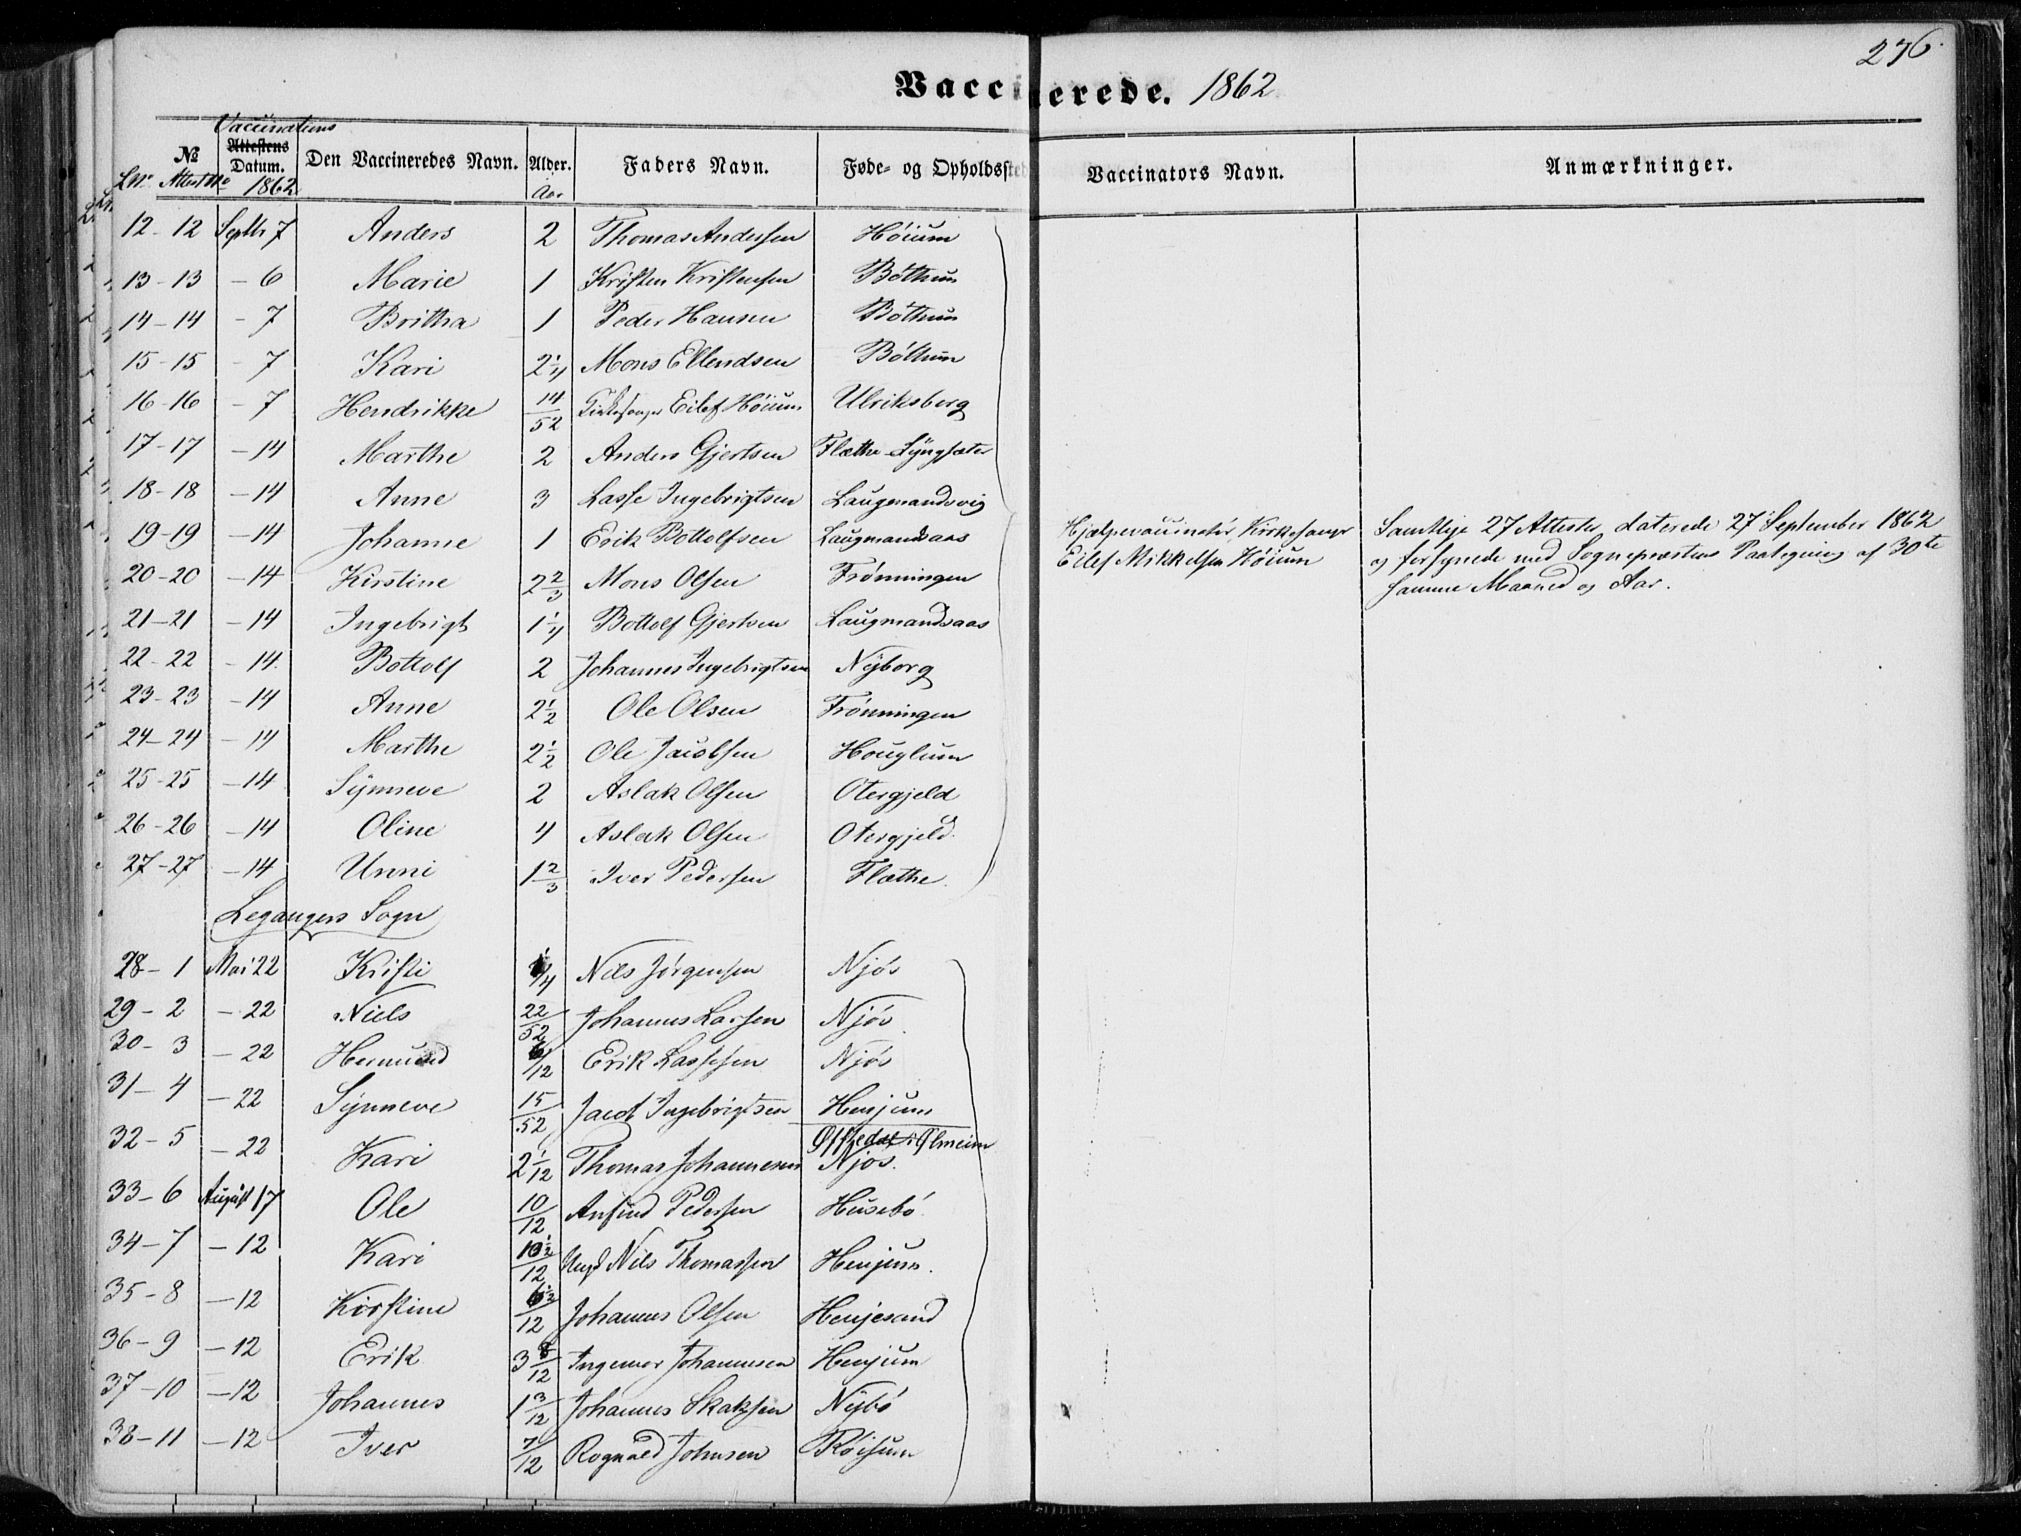 276
Vaccinerede. 1862
Vaccinations
No Attestens Datum. Den Vaccineredes Navn. Alder. Faders Navn. Føde- og Opholdssted Vaccinators Navn. Anmærkninger.
LNo Attest No 1862 Aar
12-12 Septbr 7 Anders 2 Thomas Andersen Høium
13-13 - 6 Marie 1 Kristen Kristensen Bøthun
14-14 - 7 Britha 1 Peder Hansen Bøthun
15-15 - 7 Kari 2 1/4 Mons Ellendsen Bøthun
16-16 - 7 Hendrikke 14/52 Kirkesanger Eilef Høium Ulriksberg
17-17 - 14 Marthe 2 Anders Gjertsen Flæthe
18-18 - 14 Anne 3 Lasse Ingebrigtsen Laugmandsvig
19-19 - 14 Johanne 1 Erik Bottolfsen Laugmandsaas
Hjælpevaccinatør, Kirkesanger
Eilef Mikkelsen Høium
Samtlige 27 Attester daterede 27 September 1862
og forsynede med Sognepræstens Paategning af 30te
samme Maaned og Aar.
20-20 - 14 Kirstine 2 2/3 Mons Olsen Frønningen
21-21 - 14 Ingebrigt 1 1/4 Bottolf Gjertsen Laugmandsaas
22-22 - 14 Bottolf 2 Johannes Ingebrigtsen Nyborg
23-23 - 14 Anne 2 1/2 Ole Olsen Frønningen
24-24 - 14 Marthe 2 1/2 Ole Jacobsen Houglum
25-25 - 14 Synneve 2 Aslak Olsen Otergjeld
26-26 - 14 Oline 4 Aslak Olsen Otergjeld
27-27 - 14 Unni 1 2/3 Iver Pedersen Flæthe
Legangers Sogn
28-1 Mai 22 Kristi 1/4 Nils Jørgensen Njøs
29-2 - 22 Niels 22/52 Johannes Larsen Njøs
30-3 - 22 Hermund /12 Erik Lassesen Njøs
31-4 - 22 Synneve 15/52 Jacob Ingebrigtsen Henjum
32-5 - 22 Kari 2 1/12 Thomas Johannesen Njøs.
33-6 August 17 Ole 10/12 Anfind Pedersen Husebø
34-7 - 12 Kari 10 1/2/12 Ungk Nils Thomassen Henjum.
35-8 - 12 Kirstine 6 1/2/12 Johannes Olsen Henjesand
36-9 - 12 Erik 3 8/12 Ingemor Johannesen Henjum
37-10 - 12 Johannes 1 3/12 Johannes Skaksen Nybø
38-11 - 12 Iver 7/12 Rognald Johnsen Røisum